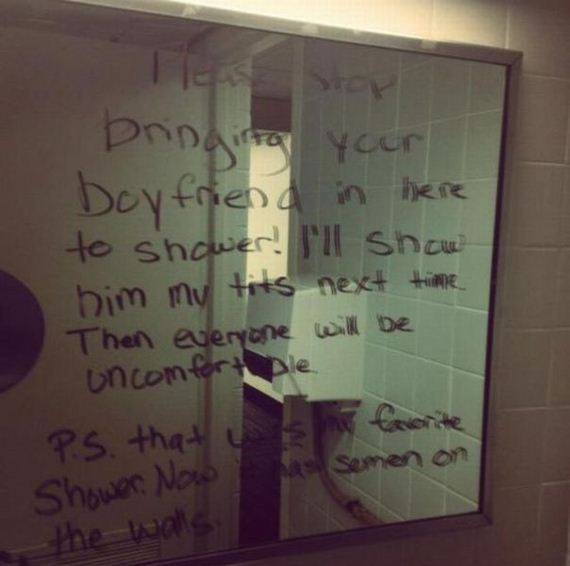 Please stop
bringing your
boyfriend in here
to shower! I'll show
him my tits next time
Then everyone will be
uncomfortable
P.S. that was my favorite
Shower. Now it has semen on
the walls.